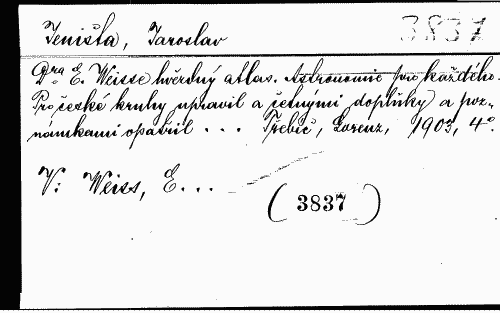 Jeništa, Jaroslav 3837
Dra E. Weisse hvězdný atlas. Astronomie pro každého.
Pro české kruhy upravil a četnými doplňky a poz-
námkami opatřil . . . Třebíč, Lorenz, 1903, 4°.
V: Weiss, E. . .
(3837)